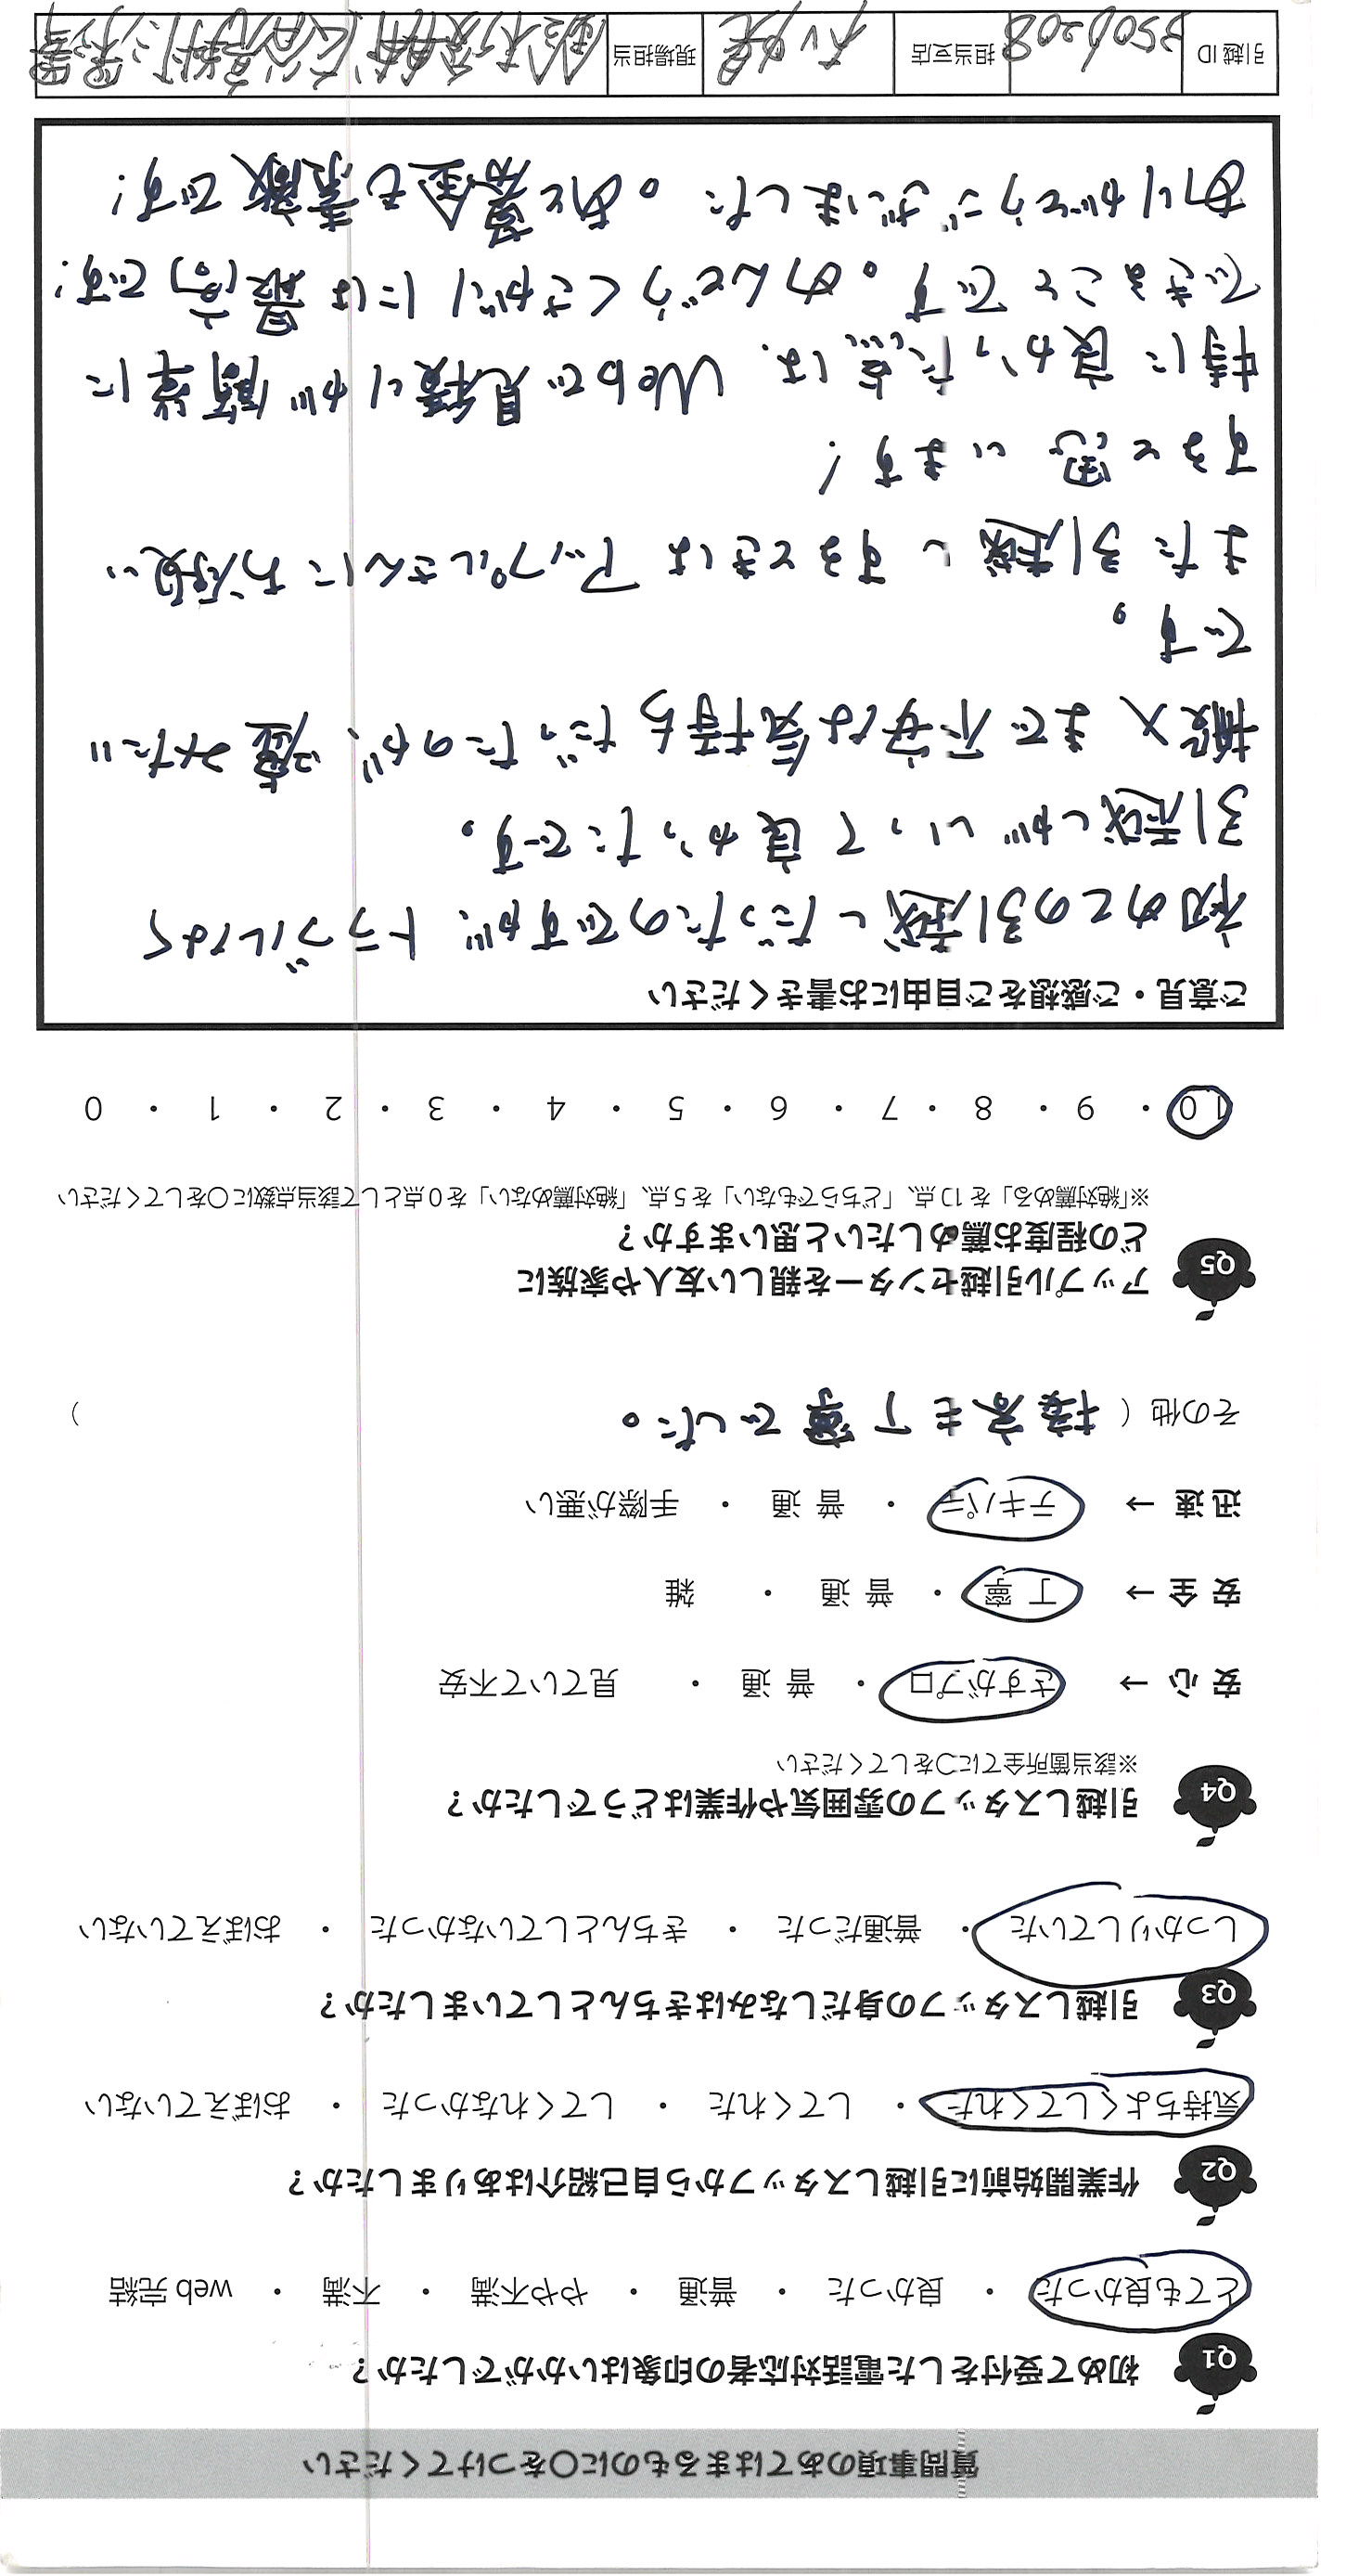 質問事項のあてはまるものに○をつけてください
Q1 初めて受付をした電話対応者の印象はいかがでしたか？
とても良かった ・ 良かった ・ 普通 ・ やや不満 ・ 不満 ・ web 完結
Q2 作業開始前に引越しスタッフから自己紹介はありましたか？
気持ちよくしてくれた ・ してくれた ・ してくれなかった ・ おぼえていない
Q3 引越しスタッフの身だしなみはきちんとしていましたか？
しっかりしていた ・ 普通だった ・ きちんとしていなかった ・ おぼえていない
Q4 引越しスタッフの雰囲気や作業はどうでしたか？
※該当箇所全てに○をしてください
安 心 → さすがプロ ・ 普 通 ・ 見ていて不安
安 全 → 丁 寧 ・ 普 通 ・ 雑
迅 速 → テキパキ ・ 普 通 ・ 手際が悪い
その他 ( 接客も丁寧でした。 )
Q5 アップル引越センターを親しい友人や家族に
どの程度お薦めしたいと思いますか？
※「絶対薦める」を10点、「どちらでもない」を5点、「絶対薦めない」を0点として該当点数に○をしてください
10 ・ 9 ・ 8 ・ 7 ・ 6 ・ 5 ・ 4 ・ 3 ・ 2 ・ 1 ・ 0
ご意見・ご感想をご自由にお書きください
初めての引越しだったのですが、トラブルなく
引越しがいって良かったです。
搬入まで不安な気持ちだったのが、嘘みたい
です。
また引越しするときはアップルさんにお願い
すると思います!
特に良かった点は、Webで見積りが簡単に
できることです。めんどうくさがりには最高です!
ありがとうございました。あと募金も素敵です!
引越 ID 3506208 担当支店 現場担当